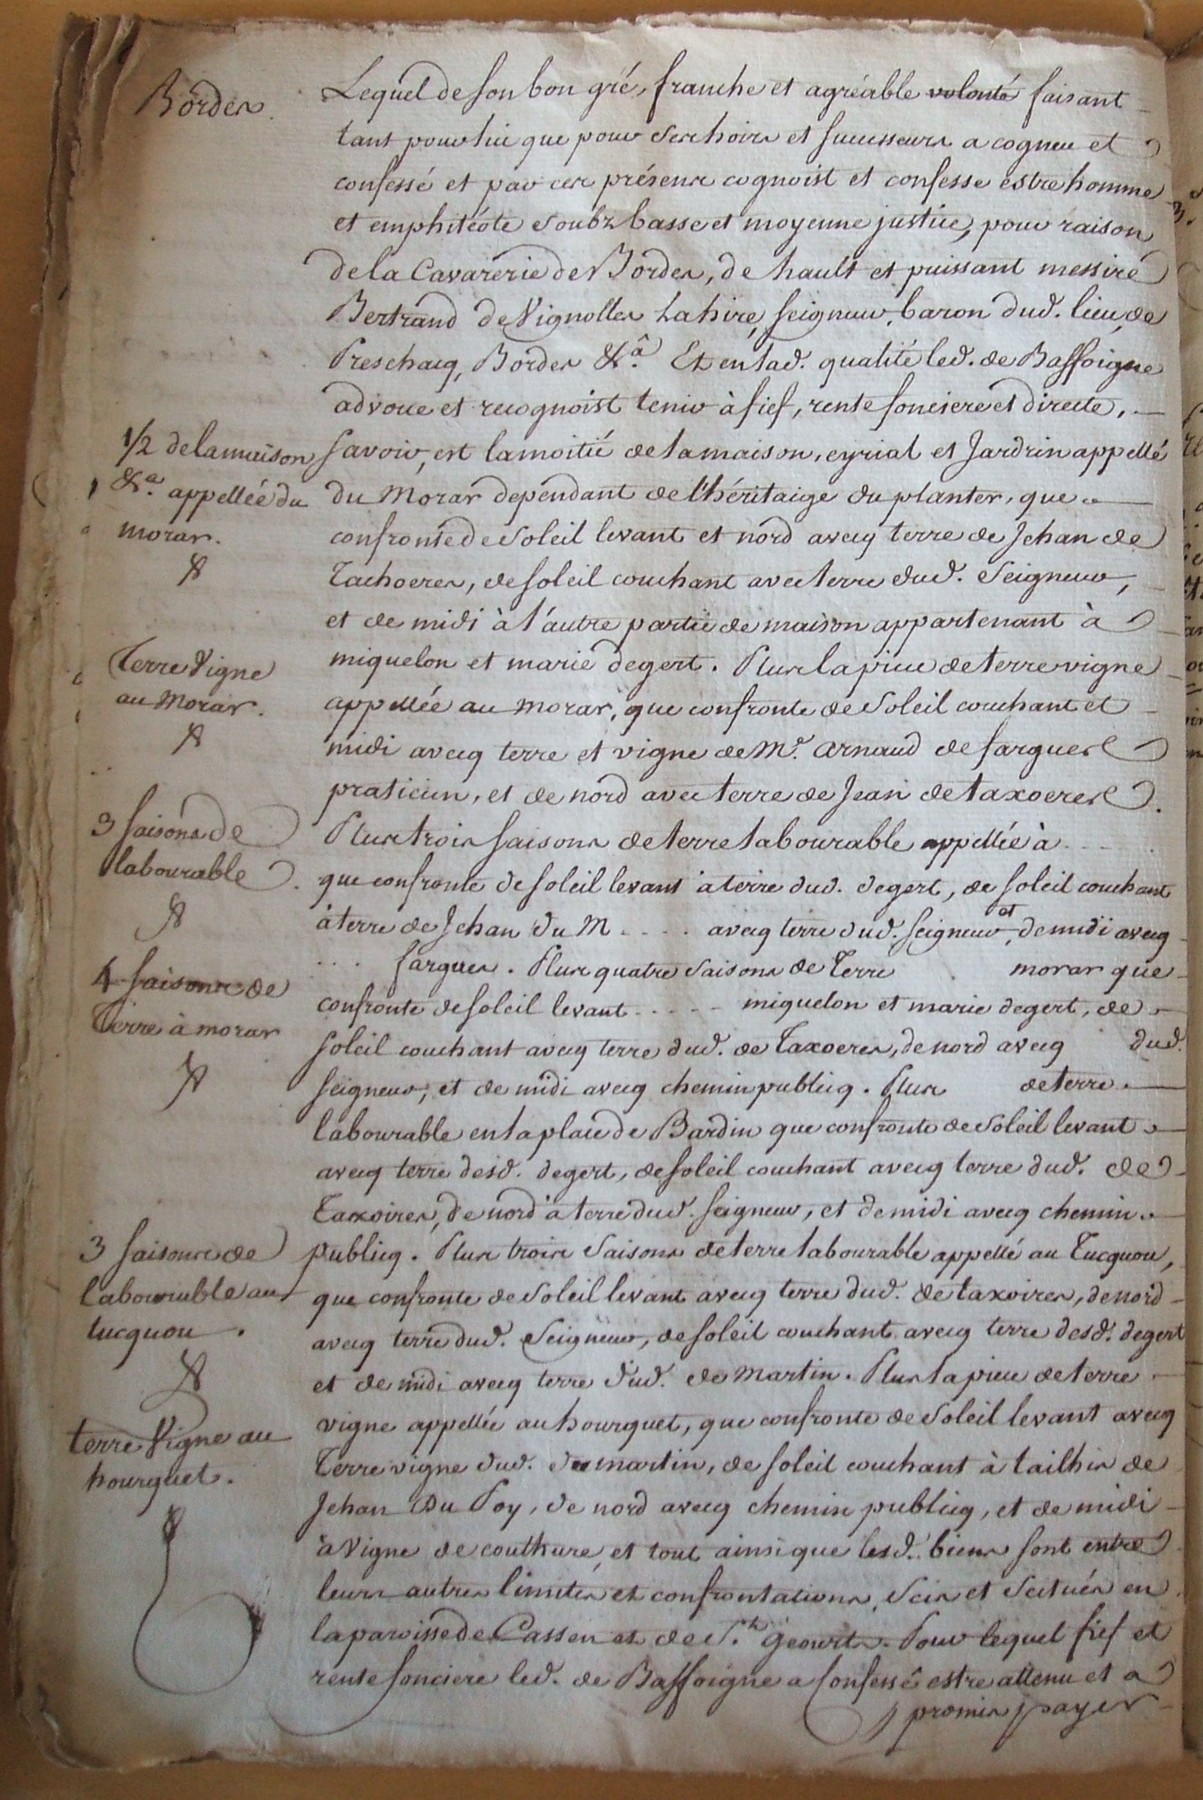 Bordes.
Lequel de son bon gré, franche et agréable volonté faisant
tant pour luie que pour ses hoirs et successeurs a cogneu et
confessé et par ces présens cognoist et confesse estre homme
et emphitéote soubz basse et moyenne justice, pour raison
de la Cavarerie de Bordes, de hault et puissant messire
Bertrand de Vignolles Lahire, seigneur, baron dud. lieu, de
Preschacq, Bordes &ª. Et en lad. qualité led. de Baffoigne
advoue et recognoist tenir à fief, rente fonciere et directe,
1/2 de la maison
&ª. appellée du
moras.
savoir, est la moitié de la maison, eyrial et Jardrin appellé
du Moras dependant de l'héritaige du planter, que
confronte de soleil levant et nord avecq terre de Jehan de
Tachoeres, de soleil couchant avec terre dud. Seigneur,
et de midi à l'autre partie de maison appartenant à
Terre Vigne
au Moras.
miquelon et marie degert. Plus la piece de terre vigne
appellée au moras, que confronte de soleil couchant et
midi avecq terre et vigne de Me. arnaud de fargues
praticien, et de nord avec terre de Jean de taxoeres.
3 saisons de
labourable.
Plus trois saisons de terre labourable appellée à . . . .
que confronte de soleil levant à terre dud. degert, de soleil couchant
à terre de Jehan du M . . . . avecq terre dud. seigneur, et de midi avecq
. . . fargues. Plus quatre saisons de Terre moras que
4 saisons de
Terre à moras
confronte de soleil levant . . . . . miquelon et marie degert, de
soleil couchant avecq terre dud. de Taxoeres, de nord avecq dud.
seigneur, et de midi avecq chemin publicq. Plus de terre
labourable en la place de Bardin que confronte de soleil levant
avecq terre desd. degert, de soleil couchant avecq terre dud. de
Taxoires, de nord à terre dud. seigneur, et de midi avecq chemin
3 saisons de
labourable au
tucquou.
publicq. Plus trois saisons de terre labourable appellé au Tucquou,
que confronte de soleil levant avecq terre dud. de taxoires, de nord
avecq terre dud. Seigneur, de soleil couchant avecq terre desd. degert
et de midi avecq terre dud. de Martin. Plus la piece de terre
terre Vigne au
hourquet.
vigne appellée au hourquet, que confronte de soleil levant avecq
Terre vigne dud. du martin, de soleil couchant à tailhis de
Jehan Du Poy, de nord avecq chemin publicq, et de midi
à vigne de coulture, et tout ainsi que lesd. biens sont entre
leurs autres limites et confrontations, scis et scitués en
la paroisse de Cassen et de St. geours. Pour lequel fief et
rente fonciere led. de Baffoigne a Confessé estre attenu et a
promis payer